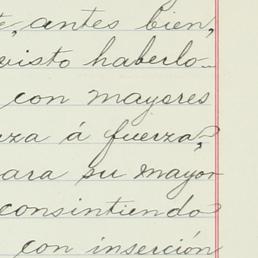 , antes bien,
visto haberlo
con mayores
za á fuerza,
ara su mayor
consintiendo
con inserción